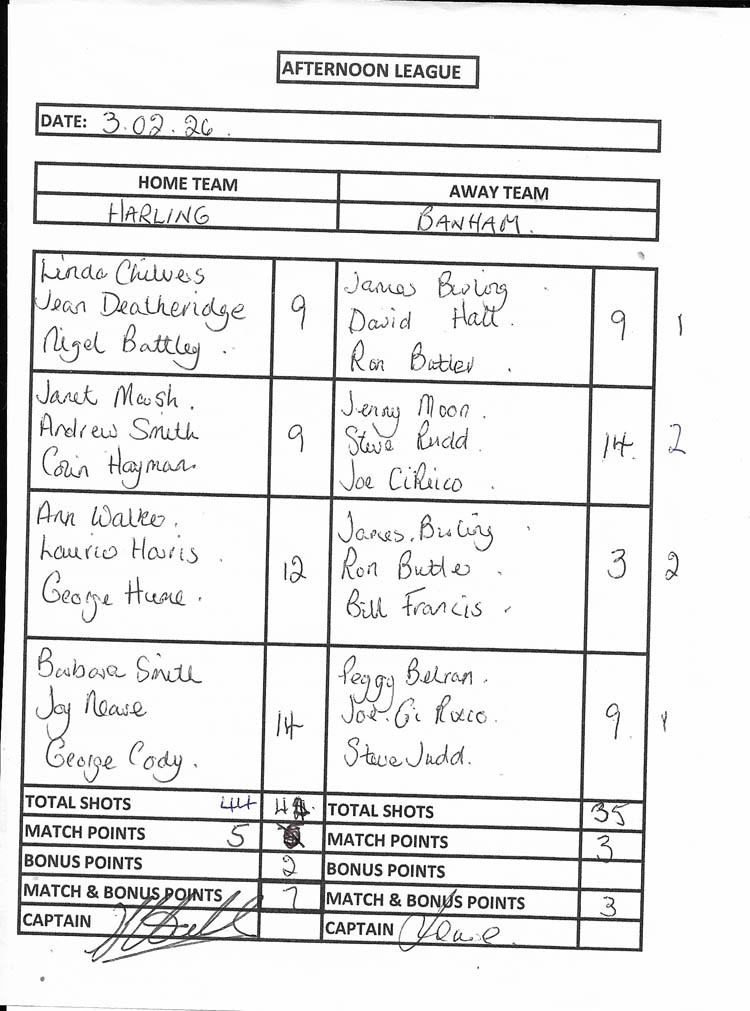 AFTERNOON LEAGUE
DATE: 3.02.26.
HOME TEAM AWAY TEAM
HARLING BANHAM.
Linda Chilvers
Jean Deatheridge 9
Nigel Battley.
James Birling
David Hall. 9 1
Ron Butler.
Janet Marsh.
Andrew Smith 9
Colin Hayman.
Jenny Moon.
Steve Rudd. 14. 2
Joe CiRicco.
Ann Walker.
Laurie Harris. 12
George Hume.
James. Birling
Ron Butler. 3 2
Bill Francis.
Barbara Smith
Joy Neave 14
George Cody.
Peggy Belran.
Joe. Ci Rocco. 9.
Steve Judd.
TOTAL SHOTS 44 TOTAL SHOTS 35
MATCH POINTS 5 MATCH POINTS 3
BONUS POINTS 2 BONUS POINTS
MATCH & BONUS POINTS 7 MATCH & BONUS POINTS 3
CAPTAIN CAPTAIN